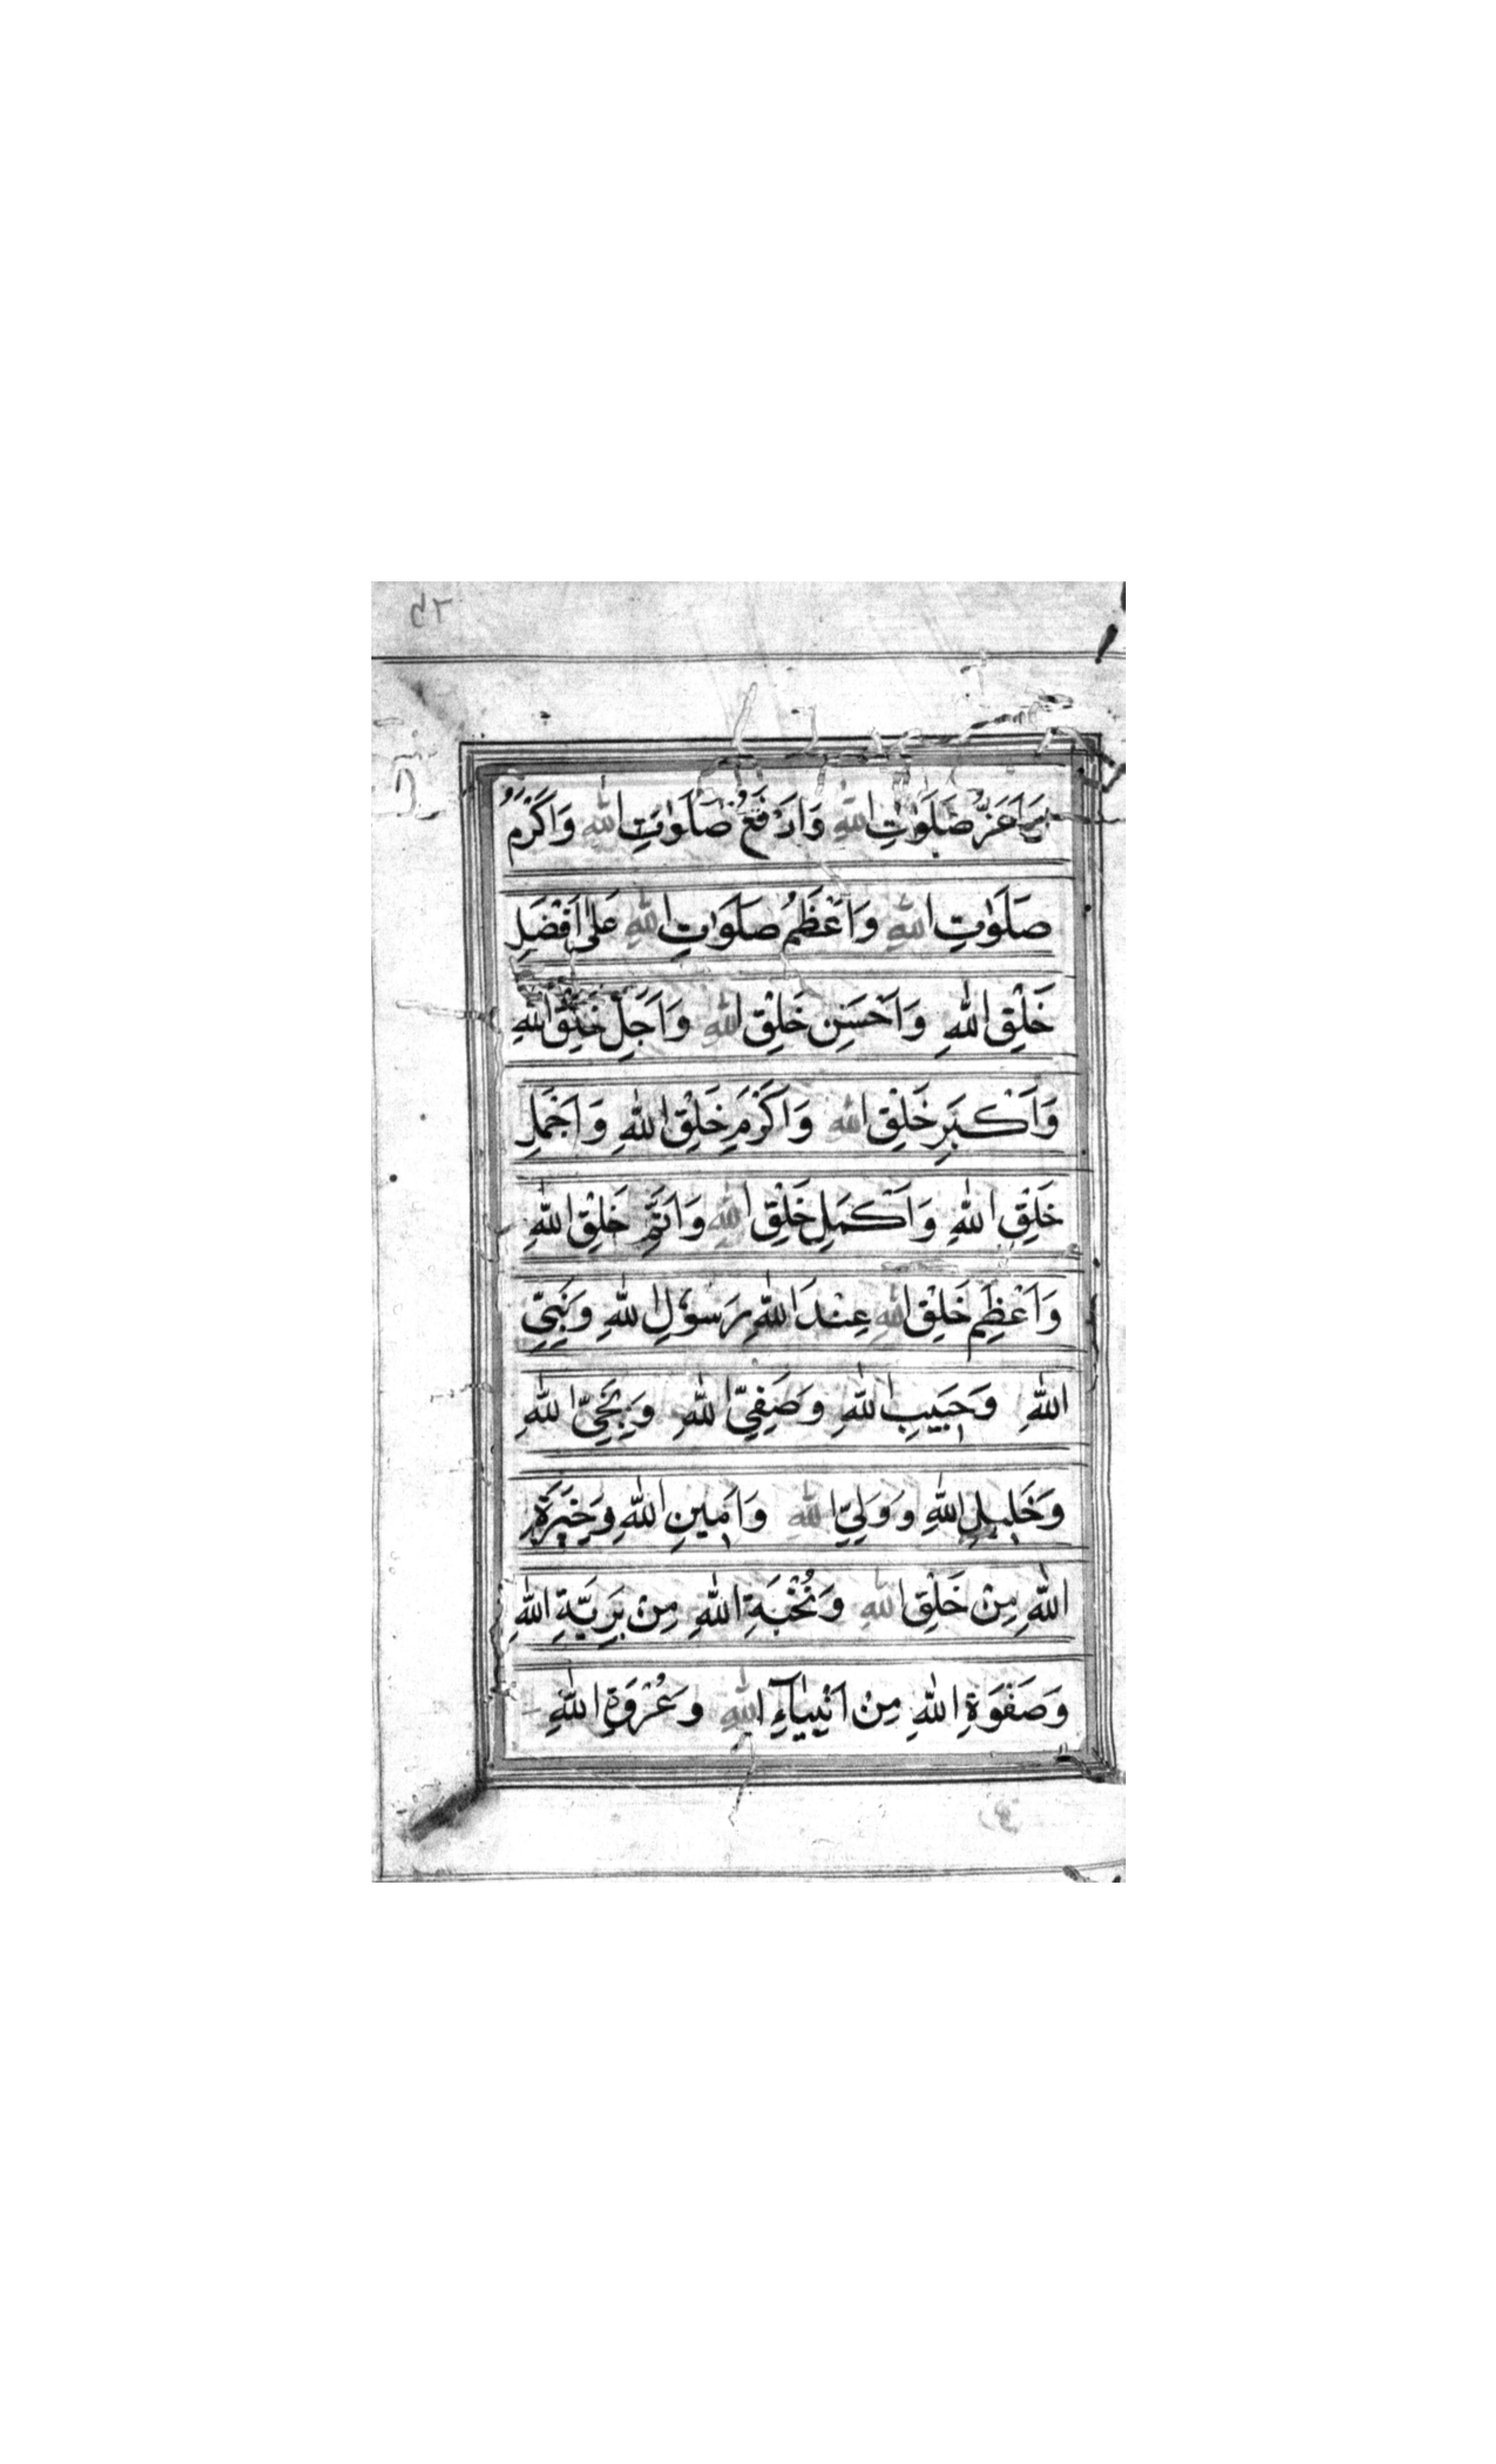 وَاَعَزُّ صَلَوٰتِ اللّٰهِ وَاَرْفَعُ صَلَوٰتِ اللّٰهِ وَاَكْرَمُ
صَلَوٰتِ اللّٰهِ وَاَعْظَمُ صَلَوٰتِ اللّٰهِ عَلٰى اَفْضَلِ
خَلْقِ اللّٰهِ وَاَحْسَنِ خَلْقِ اللّٰهِ وَاَجَلِّ خَلْقِ اللّٰهِ
وَاَكْبَرِ خَلْقِ اللّٰهِ وَاَكْرَمِ خَلْقِ اللّٰهِ وَاَجْمَلِ
خَلْقِ اللّٰهِ وَاَكْمَلِ خَلْقِ اللّٰهِ وَاَتَمِّ خَلْقِ اللّٰهِ
وَاَعْظَمِ خَلْقِ اللّٰهِ عِنْدَ اللّٰهِ رَسُوْلِ اللّٰهِ وَنَبِيِّ
اللّٰهِ وَحَبِيبِ اللّٰهِ وَصَفِيِّ اللّٰهِ وَنَجِيِّ اللّٰهِ
وَخَلِيلِ اللّٰهِ وَوَلِيِّ اللّٰهِ وَاَمِينِ اللّٰهِ وَخِيَرَةِ
اللّٰهِ مِنْ خَلْقِ اللّٰهِ وَنُخْبَةِ اللّٰهِ مِنْ بَرِيَّةِ اللّٰهِ
وَصَفْوَةِ اللّٰهِ مِنْ اَنْبِيَآءِ اللّٰهِ وَعُرْوَةِ اللّٰهِ